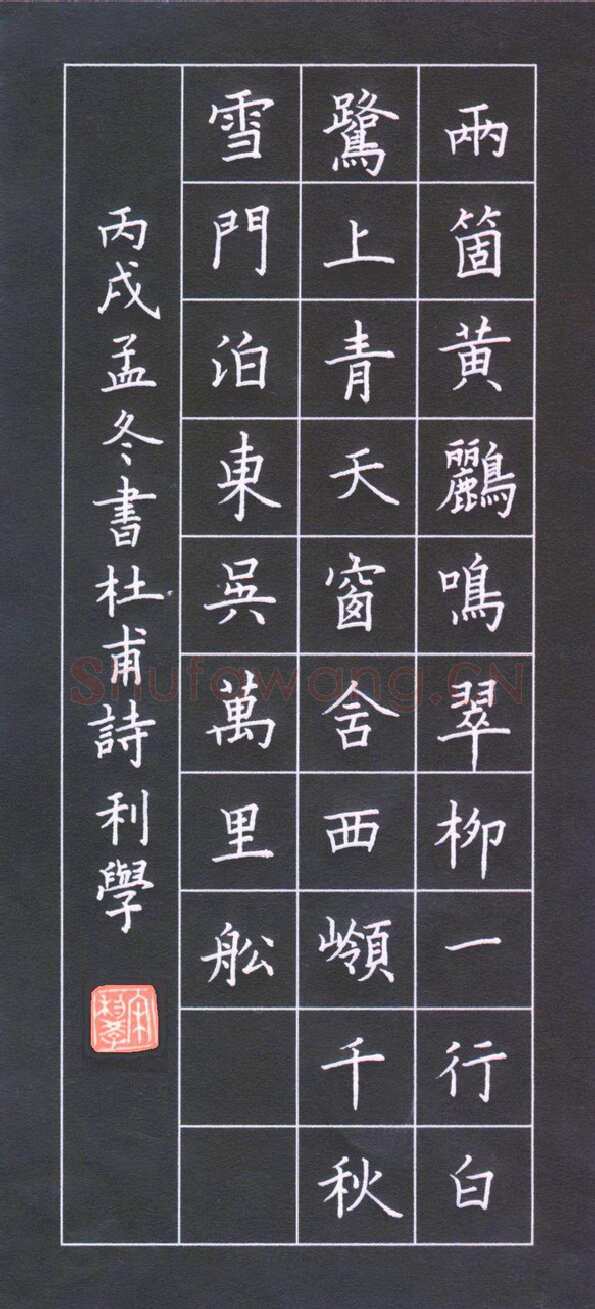 兩箇黄鸝鳴翠柳一行白
鷺上青天窗含西嶺千秋
雪門泊東吳萬里舩
丙戌孟冬書杜甫詩利學
Shufawang.CN